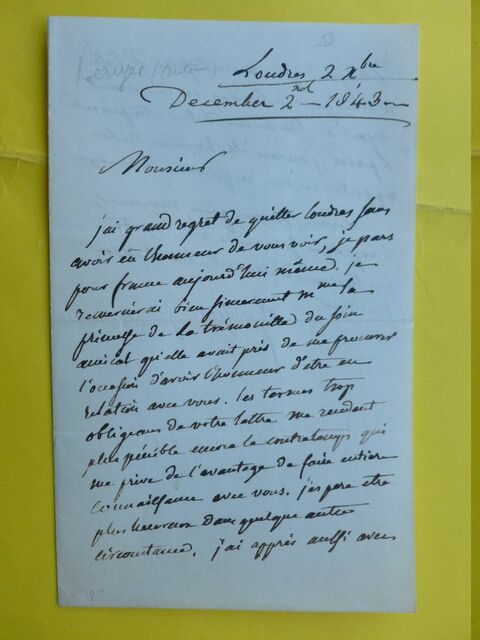 Londres 2 Xbre
December 2nd - 1843
Monsieur
j'ai grand regret de quitter londres sans
avoir eu l'honneur de vous voir, je pars
pour france aujourd'hui même. je
remercierai bien sincerement Mme la
princesse de la trémouille du soin
amical qu'elle avait pris de me procurer
l'occasion d'avoir l'honneur d'etre en
relation avec vous. les termes trop
obligeans de votre lettre me rendent
plus pénible encore le contretemps qui
me prive de l'avantage de faire entiere
connaissance avec vous. j'espere etre
plus heureux dans quelque autre
circonstance. j'ai appris aussi avec